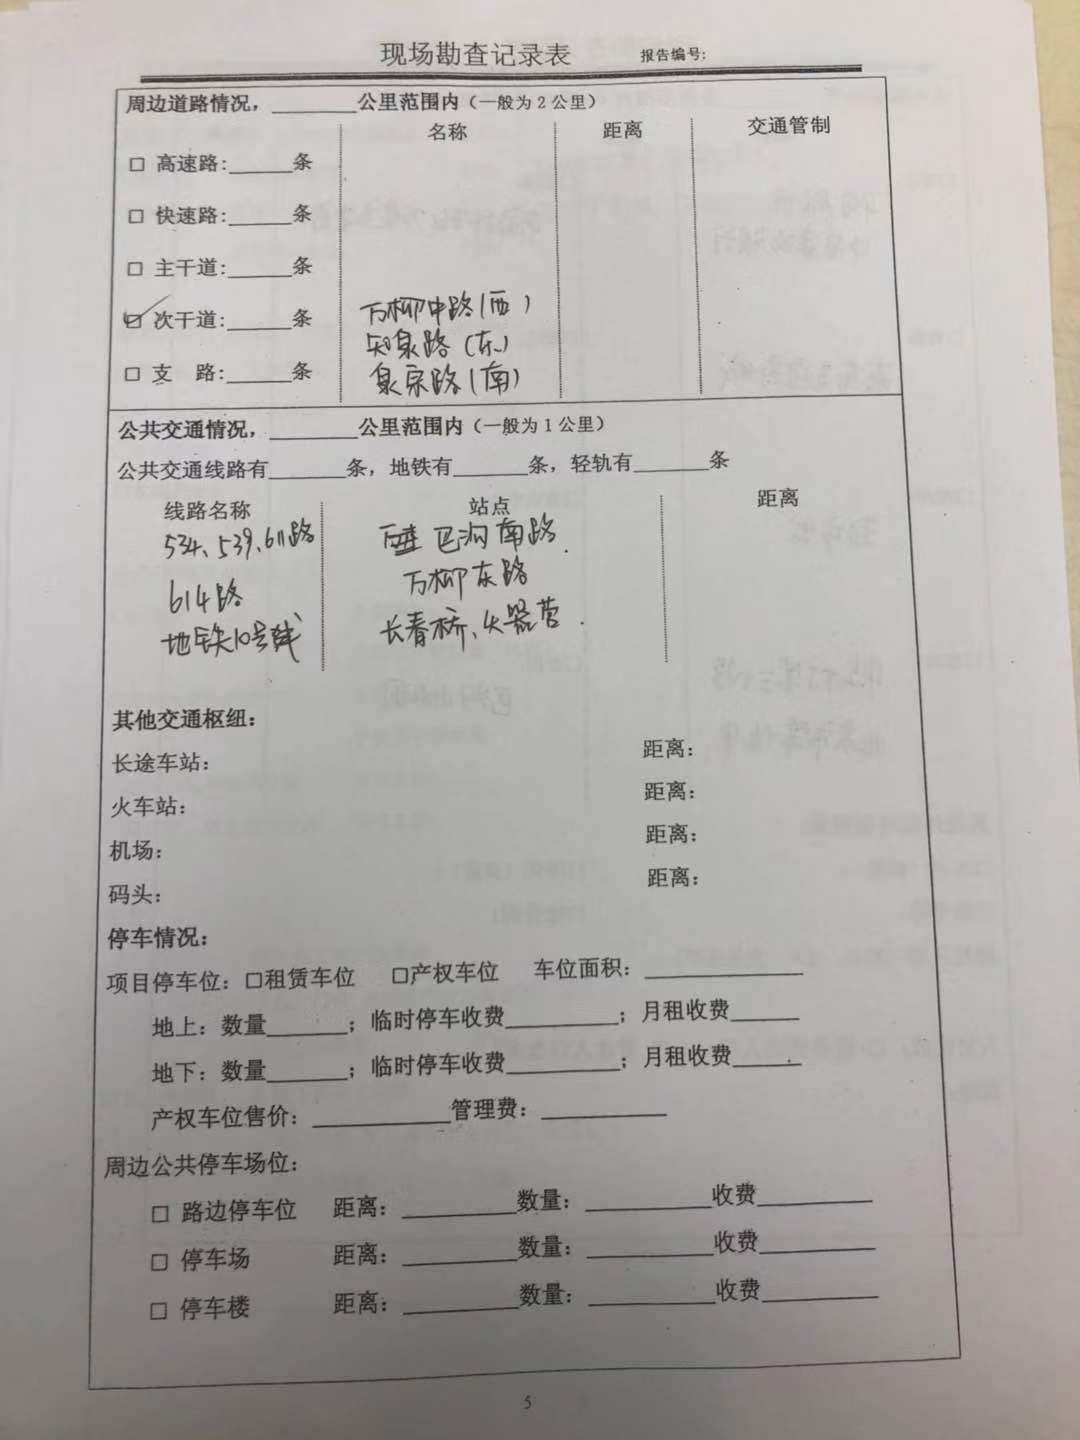 现场勘查记录表 报告编号:
周边道路情况，________公里范围内（一般为2公里）
名称 距离 交通管制
□ 高速路:______条
□ 快速路:______条
□ 主干道:______条
☑ 次干道:______条 万柳中路(西)
知泉路(东)
□ 支 路:______条 泉宗路(南)
公共交通情况，________公里范围内（一般为1公里）
公共交通线路有_______条，地铁有_______条，轻轨有_______条
线路名称 站点 距离
534、539、611路 巴沟南路
614路 万柳东路
地铁10号线 长春桥、火器营
其他交通枢纽:
长途车站: 距离:
火车站: 距离:
机场: 距离:
码头: 距离:
停车情况:
项目停车位: □租赁车位 □产权车位 车位面积: ______________
地上: 数量_______; 临时停车收费__________; 月租收费______
地下: 数量_______; 临时停车收费__________; 月租收费______
产权车位售价: ____________管理费: ___________
周边公共停车场位:
□ 路边停车位 距离: __________数量: ___________收费__________
□ 停车场 距离: __________数量: ___________收费__________
□ 停车楼 距离: __________数量: ___________收费__________
5